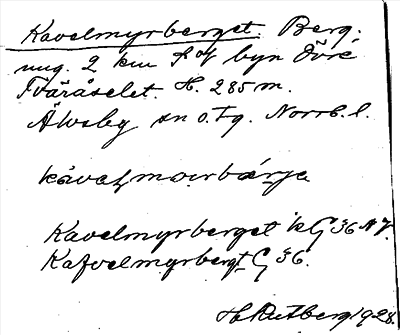 Kavelmyrberget. Berg.
ung. 2 km S of byn Övre
Tväråselet. H. 285 m.
Älvsby sn o. tg. Norrb. l.
Kavelmyrberget k G 36 N V.
Kafvelmyrbergt G 36.
H. Rutberg 1928.